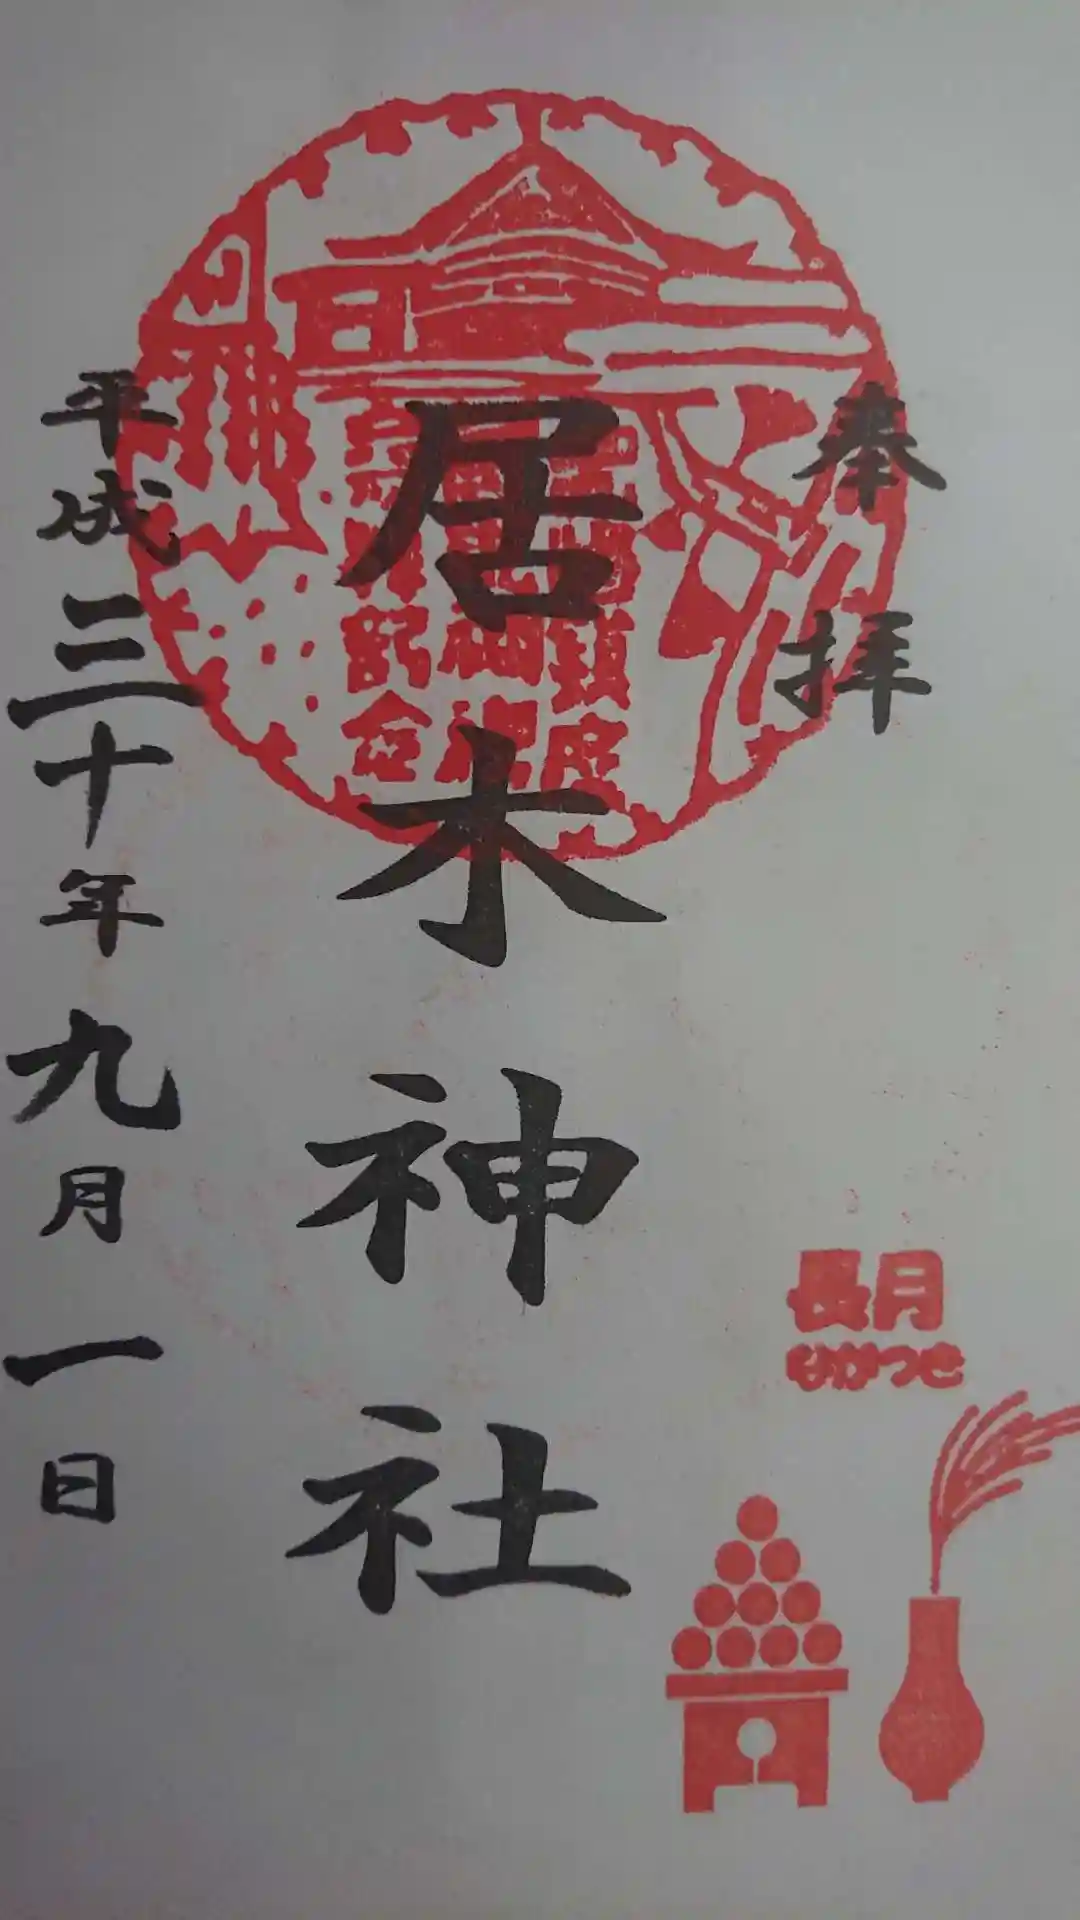 奉拝
居木神社
平成三十年九月一日
長月
ながつき